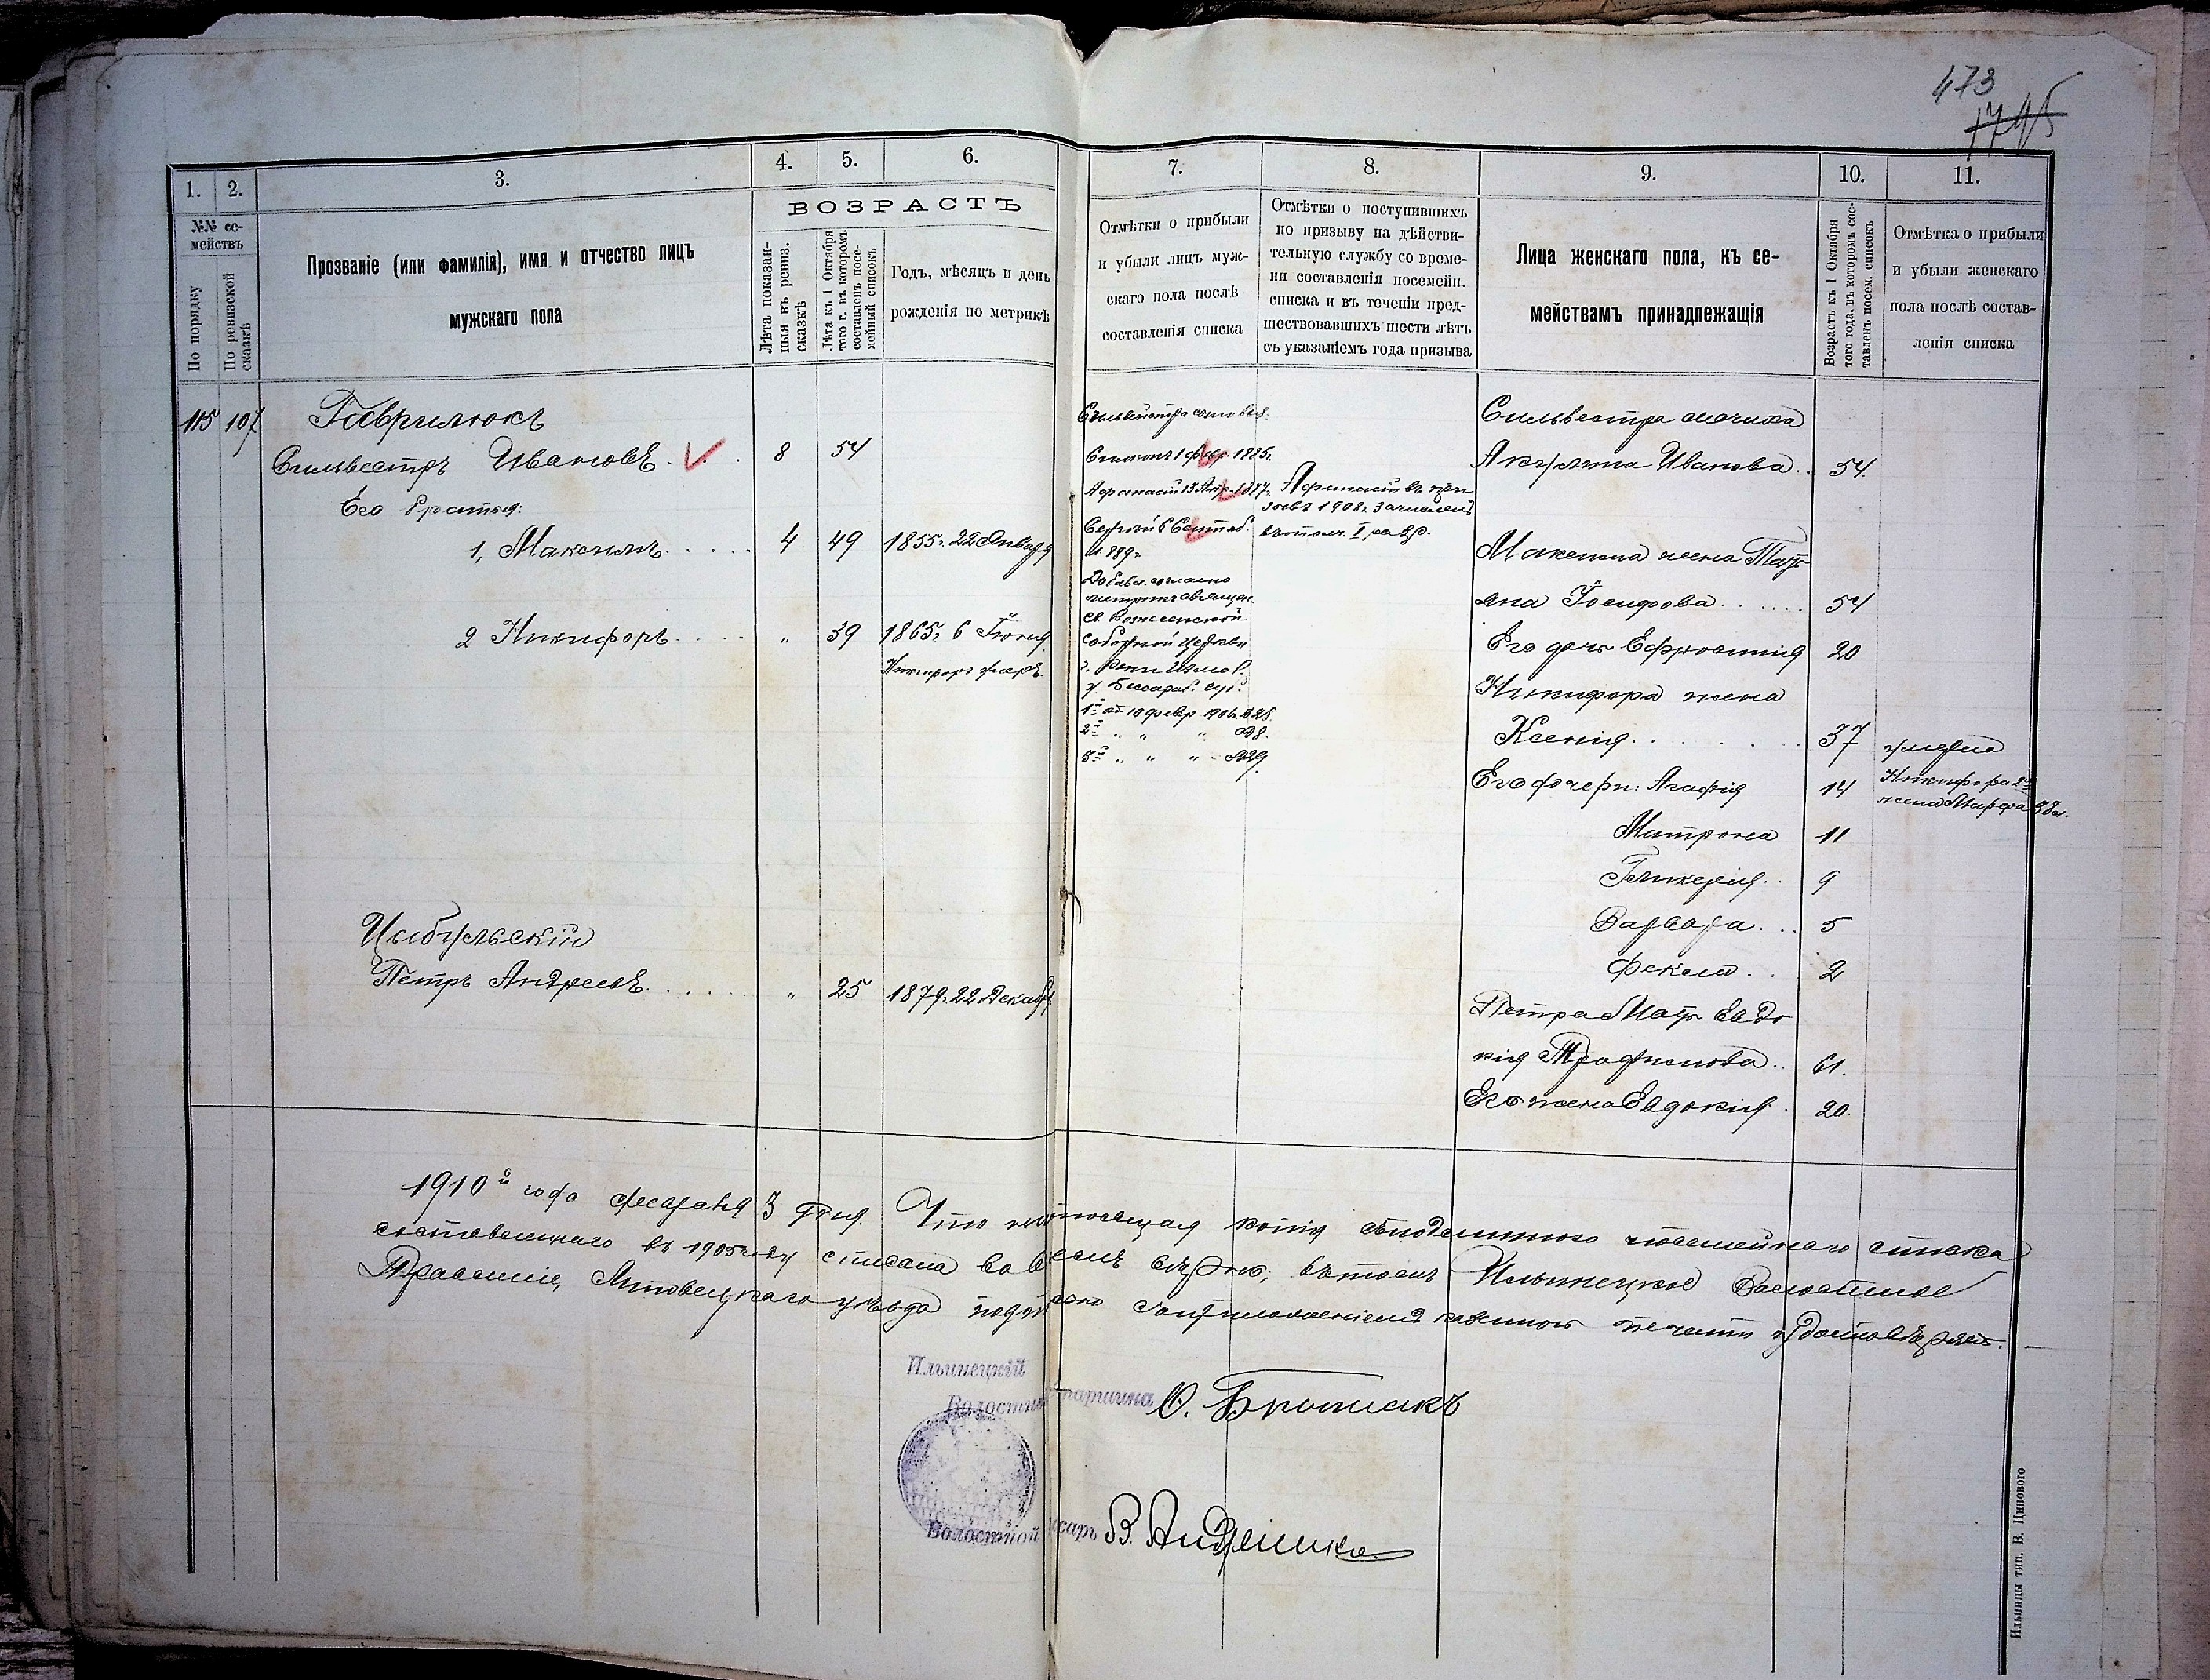 473
1795
1.
2.
3.
4.
5.
6.
7.
8.
9.
10.
11.
№№ се-
мействъ
По порядку
По ревизской
сказкѣ
Прозваніе (или фамилія), имя и отчество лицъ
мужскаго пола
ВОЗРАСТЪ
Лѣта показан-
ныя въ ревиз.
сказкѣ
Лѣта къ 1 Октября
того г. въ которомъ
составленъ посе-
мейный списокъ
Годъ, мѣсяцъ и день
рожденія по метрикѣ
Отмѣтки о прибыли
и убыли лицъ муж-
скаго пола послѣ
составленія списка
Отмѣтки о поступившихъ
по призыву на дѣйстви-
тельную службу со време-
ни составленія посемейн.
списка и въ теченіи пред-
шествовавшихъ шести лѣтъ
съ указаніемъ года призыва
Лица женскаго пола, къ се-
мействамъ принадлежащія
Возрастъ къ 1 Октября
того года, въ которомъ сос-
тавленъ посем. списокъ
Отмѣтка о прибыли
и убыли женскаго
пола послѣ состав-
ленія списка
115 107 Гаврилюкъ
Сильвестръ Ивановъ. 8 54
Его братья:
1, Максимъ 4 49 1855г. 22 Января
2 Никифоръ " 39 1865г. 6 Іюня
Цыбульскій
Петръ Андреевъ " 25 1879г. 22 Декабр
Сильвестра сыновья.
Симеонъ 1 февр. 1885г.
Афанасій 13 Апр. 1887г.
Сергѣй 6 Сентяб.
1889г.
Добавл. согласно
метрикъ
Св. Вознесенской
соборной церкви
г. Рени Измаил.
у. Бессараб. губ.
1й от 10 февр. 1906 №28.
2й " " " №8.
3й " " " №29.
Афанасій въ при-
зывѣ 1908г. зачисленъ
въ ополч. I разр.
Сильвестра мачиха
Акулина Иванова.. 54.
Максима жена Татъ
яна Іосифова 54
Его дочь Ефросинія 20
Никифора жена
Ксенія 37 умерла
Его дочери: Агафія 14 Никифора 2я
жена Марфа
Матрона 11
Гликерія.. 9
Варвара 5
Фекла 2
Петра Мать Евдо
кія Трофимова.. 61.
Его жена Евдокія. 20.
1910й года февраля 3 дня. Что настоящая копія съ подлиннаго посемейнаго списка
составленнаго въ 1905 году списана во всемъ вѣрно, въ томъ Ильинецкое Волостное
Правленіе, Липовецкаго уѣзда подписью съ приложеніемъ казенной печати удостовѣряетъ.
Ильинецкій
Волостный Старшина
Волостной Писарь
Ильинцы тип. В. Цинового